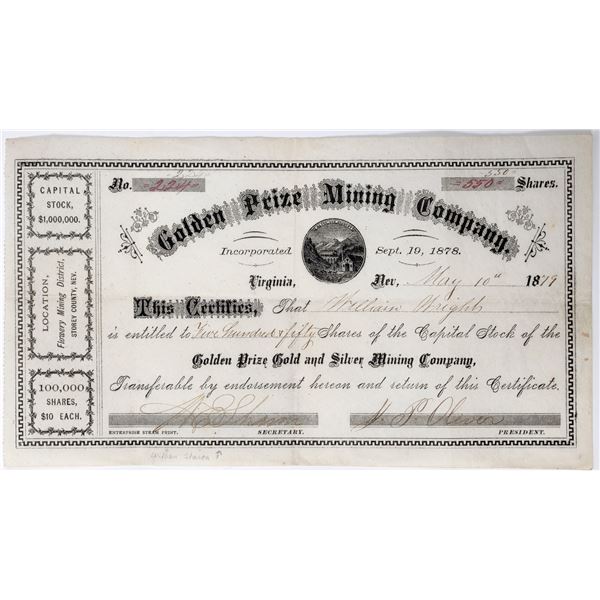 CAPITAL
STOCK,
$1,000,000.
LOCATION,
Flowery Mining District,
STOREY COUNTY, NEV.
100,000
SHARES,
$10 EACH.
No. 224 550 Shares.
Golden Prize Mining Company,
Incorporated Sept. 19, 1878.
Virginia, Nev, May 10th 1879
This Certifies, That William Wright
is entitled to Five Hundred & fifty Shares of the Capital Stock of the
Golden Prize Gold and Silver Mining Company,
Transferable by endorsement hereon and return of this Certificate.
ENTERPRISE STEAM PRINT. SECRETARY. PRESIDENT.